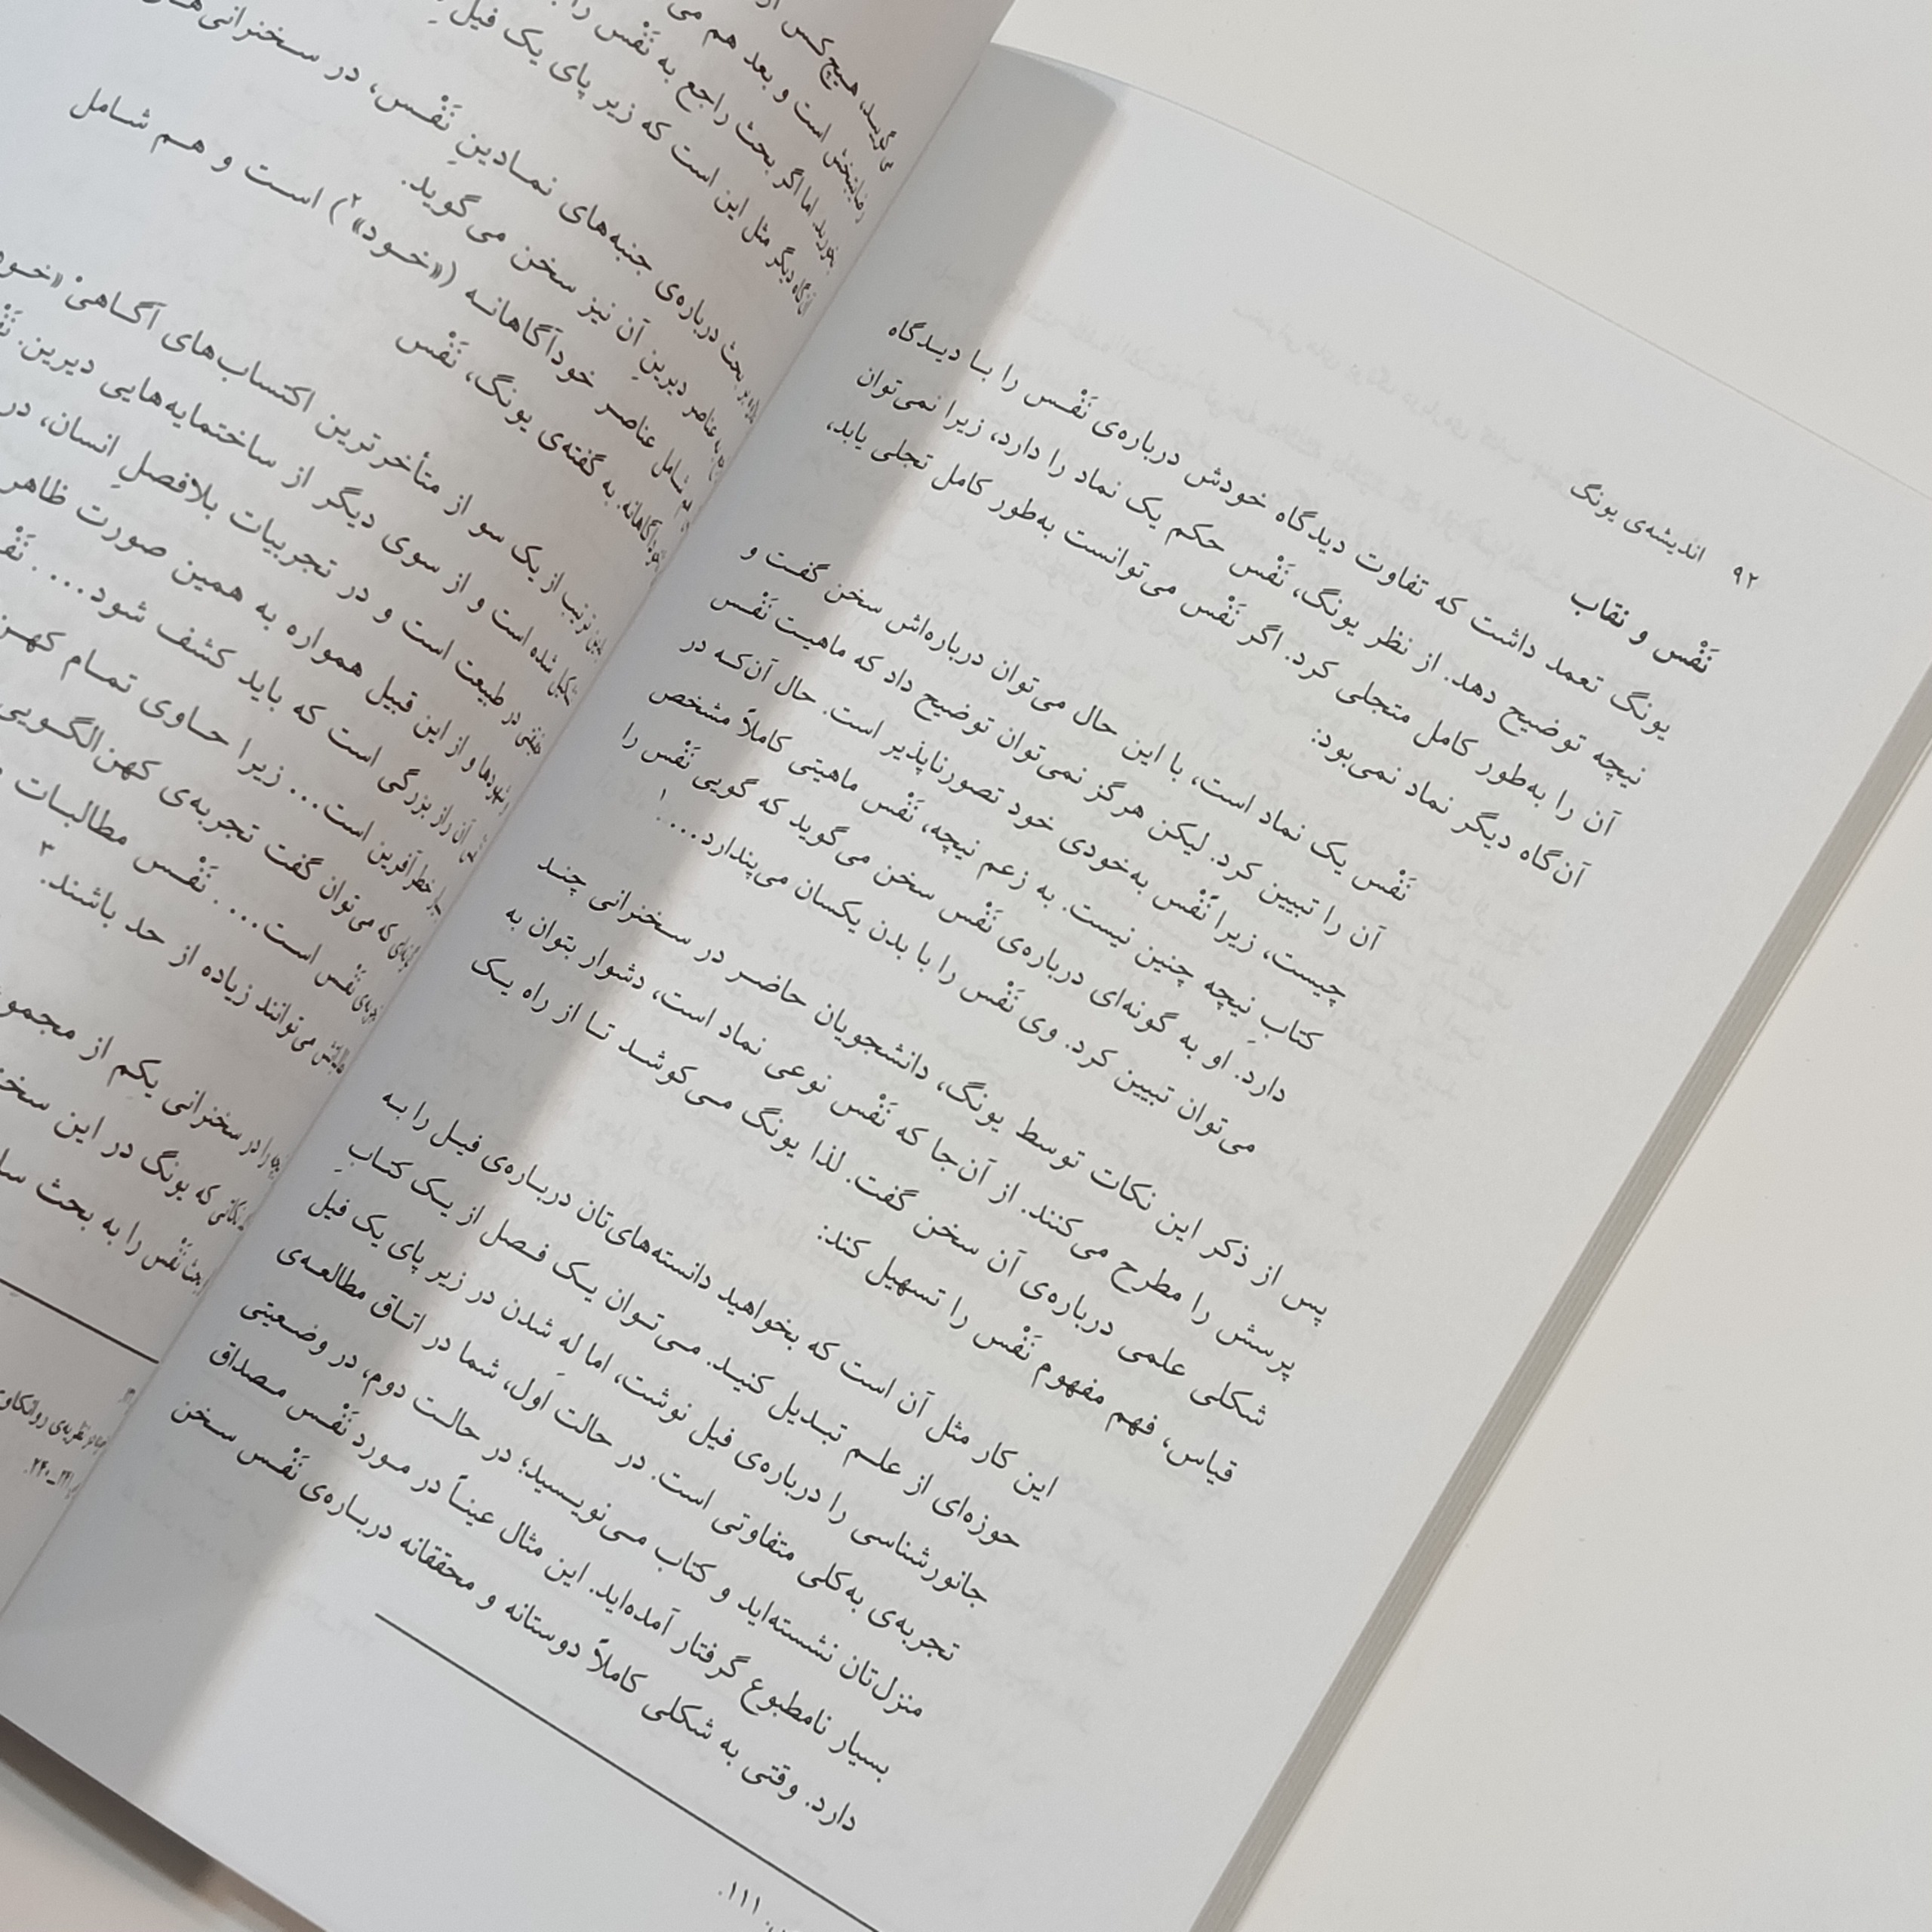 ۹۲ اندیشه‌ی یونگ
نَفْس و نقاب
یونگ تعمد داشت که تفاوت دیدگاه خودش درباره‌ی نَفْس را با دیدگاه
نیچه توضیح دهد. از نظر یونگ، نَفْس حکم یک نماد را دارد، زیرا نمی‌توان
آن را به‌طور کامل متجلی کرد. اگر نَفْس می‌توانست به‌طور کامل تجلی یابد،
آن‌گاه دیگر نماد نمی‌بود:
نَفْس یک نماد است، با این حال می‌توان درباره‌اش سخن گفت و
آن را تبیین کرد. لیکن هرگز نمی‌توان توضیح داد که ماهیت نَفْس
چیست، زیرا نَفْس به‌خودی خود تصورناپذیر است. حال آن‌که در
کتابِ نیچه چنین نیست. به زعم نیچه، نَفْس ماهیتی کاملاً مشخص
دارد. او به گونه‌ای درباره‌ی نَفْس سخن می‌گوید که گویی نَفْس را
می‌توان تبیین کرد. وی نَفْس را با بدن یکسان می‌پندارد....۱
پس از ذکر این نکات توسط یونگ، دانشجویان حاضر در سخنرانی چند
پرسش را مطرح می‌کنند. از آن‌جا که نَفْس نوعی نماد است، دشوار بتوان به
شکلی علمی درباره‌ی آن سخن گفت. لذا یونگ می‌کوشد تا از راه یک
قیاس، فهم مفهوم نَفْس را تسهیل کند:
این کار مثل آن است که بخواهید دانسته‌های‌تان درباره‌ی فیل را به
حوزه‌ای از علم تبدیل کنید. می‌توان یک فصل از یک کتابِ
جانورشناسی را درباره‌ی فیل نوشت، اما لِه شدن در زیر پای یک فیل
تجربه‌ی به‌کلی متفاوتی است. در حالت اول، شما در اتاق مطالعه‌ی
منزل‌تان نشسته‌اید و کتاب می‌نویسید؛ در حالت دوم، در وضعیتی
بسیار نامطبوع گرفتار آمده‌اید. این مثال عیناً در مورد نَفْس مصداق
دارد. وقتی به شکلی کاملاً دوستانه و محققانه درباره‌ی نَفْس سخن
۱۱۱.
می‌گوید، هیچ‌کس از
است و بعد هم می
بخورید. اما اگر بحث راجع به نَفْس را
آن‌گاه دیگر مثل این است که زیر پای یک فیل
بحث درباره‌ی جنبه‌های نمادینِ نَفْس، در سخنرانی
عناصر دیرینِ آن نیز سخن می‌گوید.
هم شامل عناصر خودآگاهانه («خود»۲) است و هم شامل
به گفته‌ی یونگ، نَفْس
از یک سو از متأخرترین اکتساب‌های آگاهیْ «خود
تشکیل شده است و از سوی دیگر از ساختمایه‌هایی دیرین.
در طبیعت است و در تجربیات بلافصلِ انسان، در
و از این قبیل همواره به همین صورت ظاهر
آن راز بزرگی است که باید کشف شود....
خطرآفرین است... زیرا حاوی تمام
که می‌توان گفت تجربه‌ی کهن‌الگویی
نَفْس است.... نَفْس مطالبات
می‌توانند زیاده از حد باشند.۳
را در سخنرانی یکم از
که یونگ در این
بحث نَفْس را به بحث
نظریه‌ی